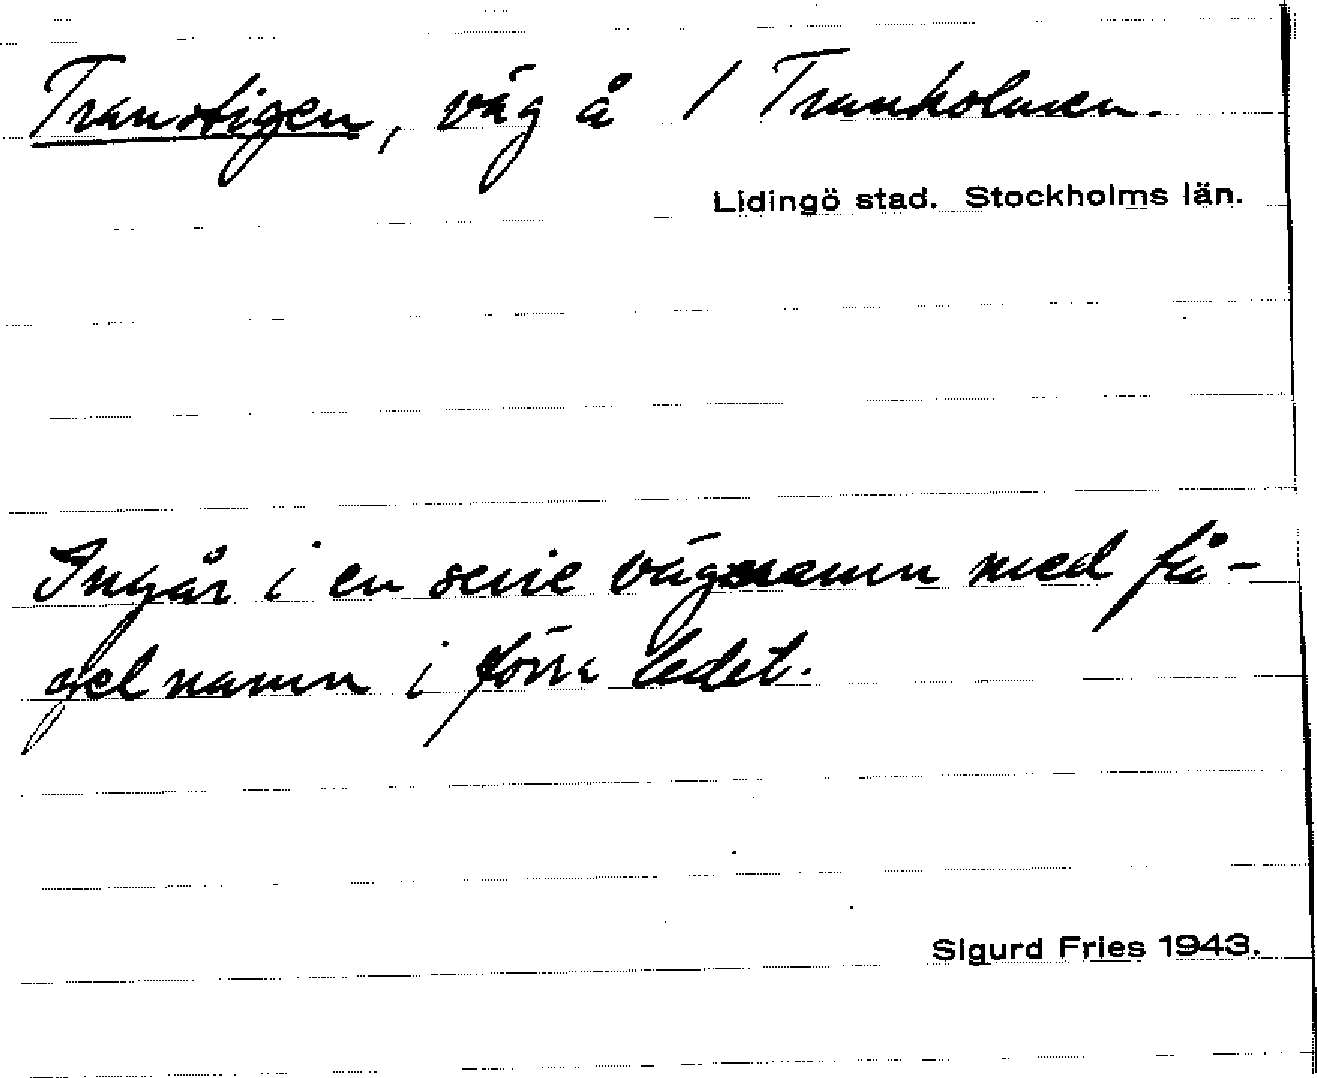 Transtigen, väg å / Tranholmen.
Lidingö stad. Stockholms län.
Ingår i en serie vägnamn med få-
gelnamn i förra ledet.
Sigurd Fries 1943.